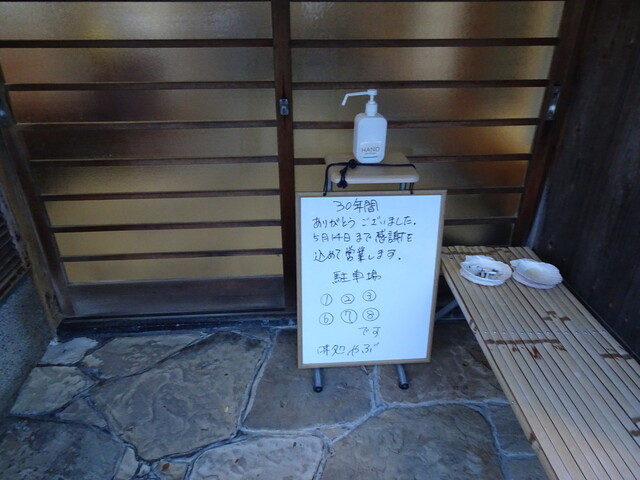 HAND
30年間
ありがとうございました。
5月14日まで感謝を
込めて営業します。
駐車場
① ② ③
⑥ ⑦ ⑧
です
味処やぶ